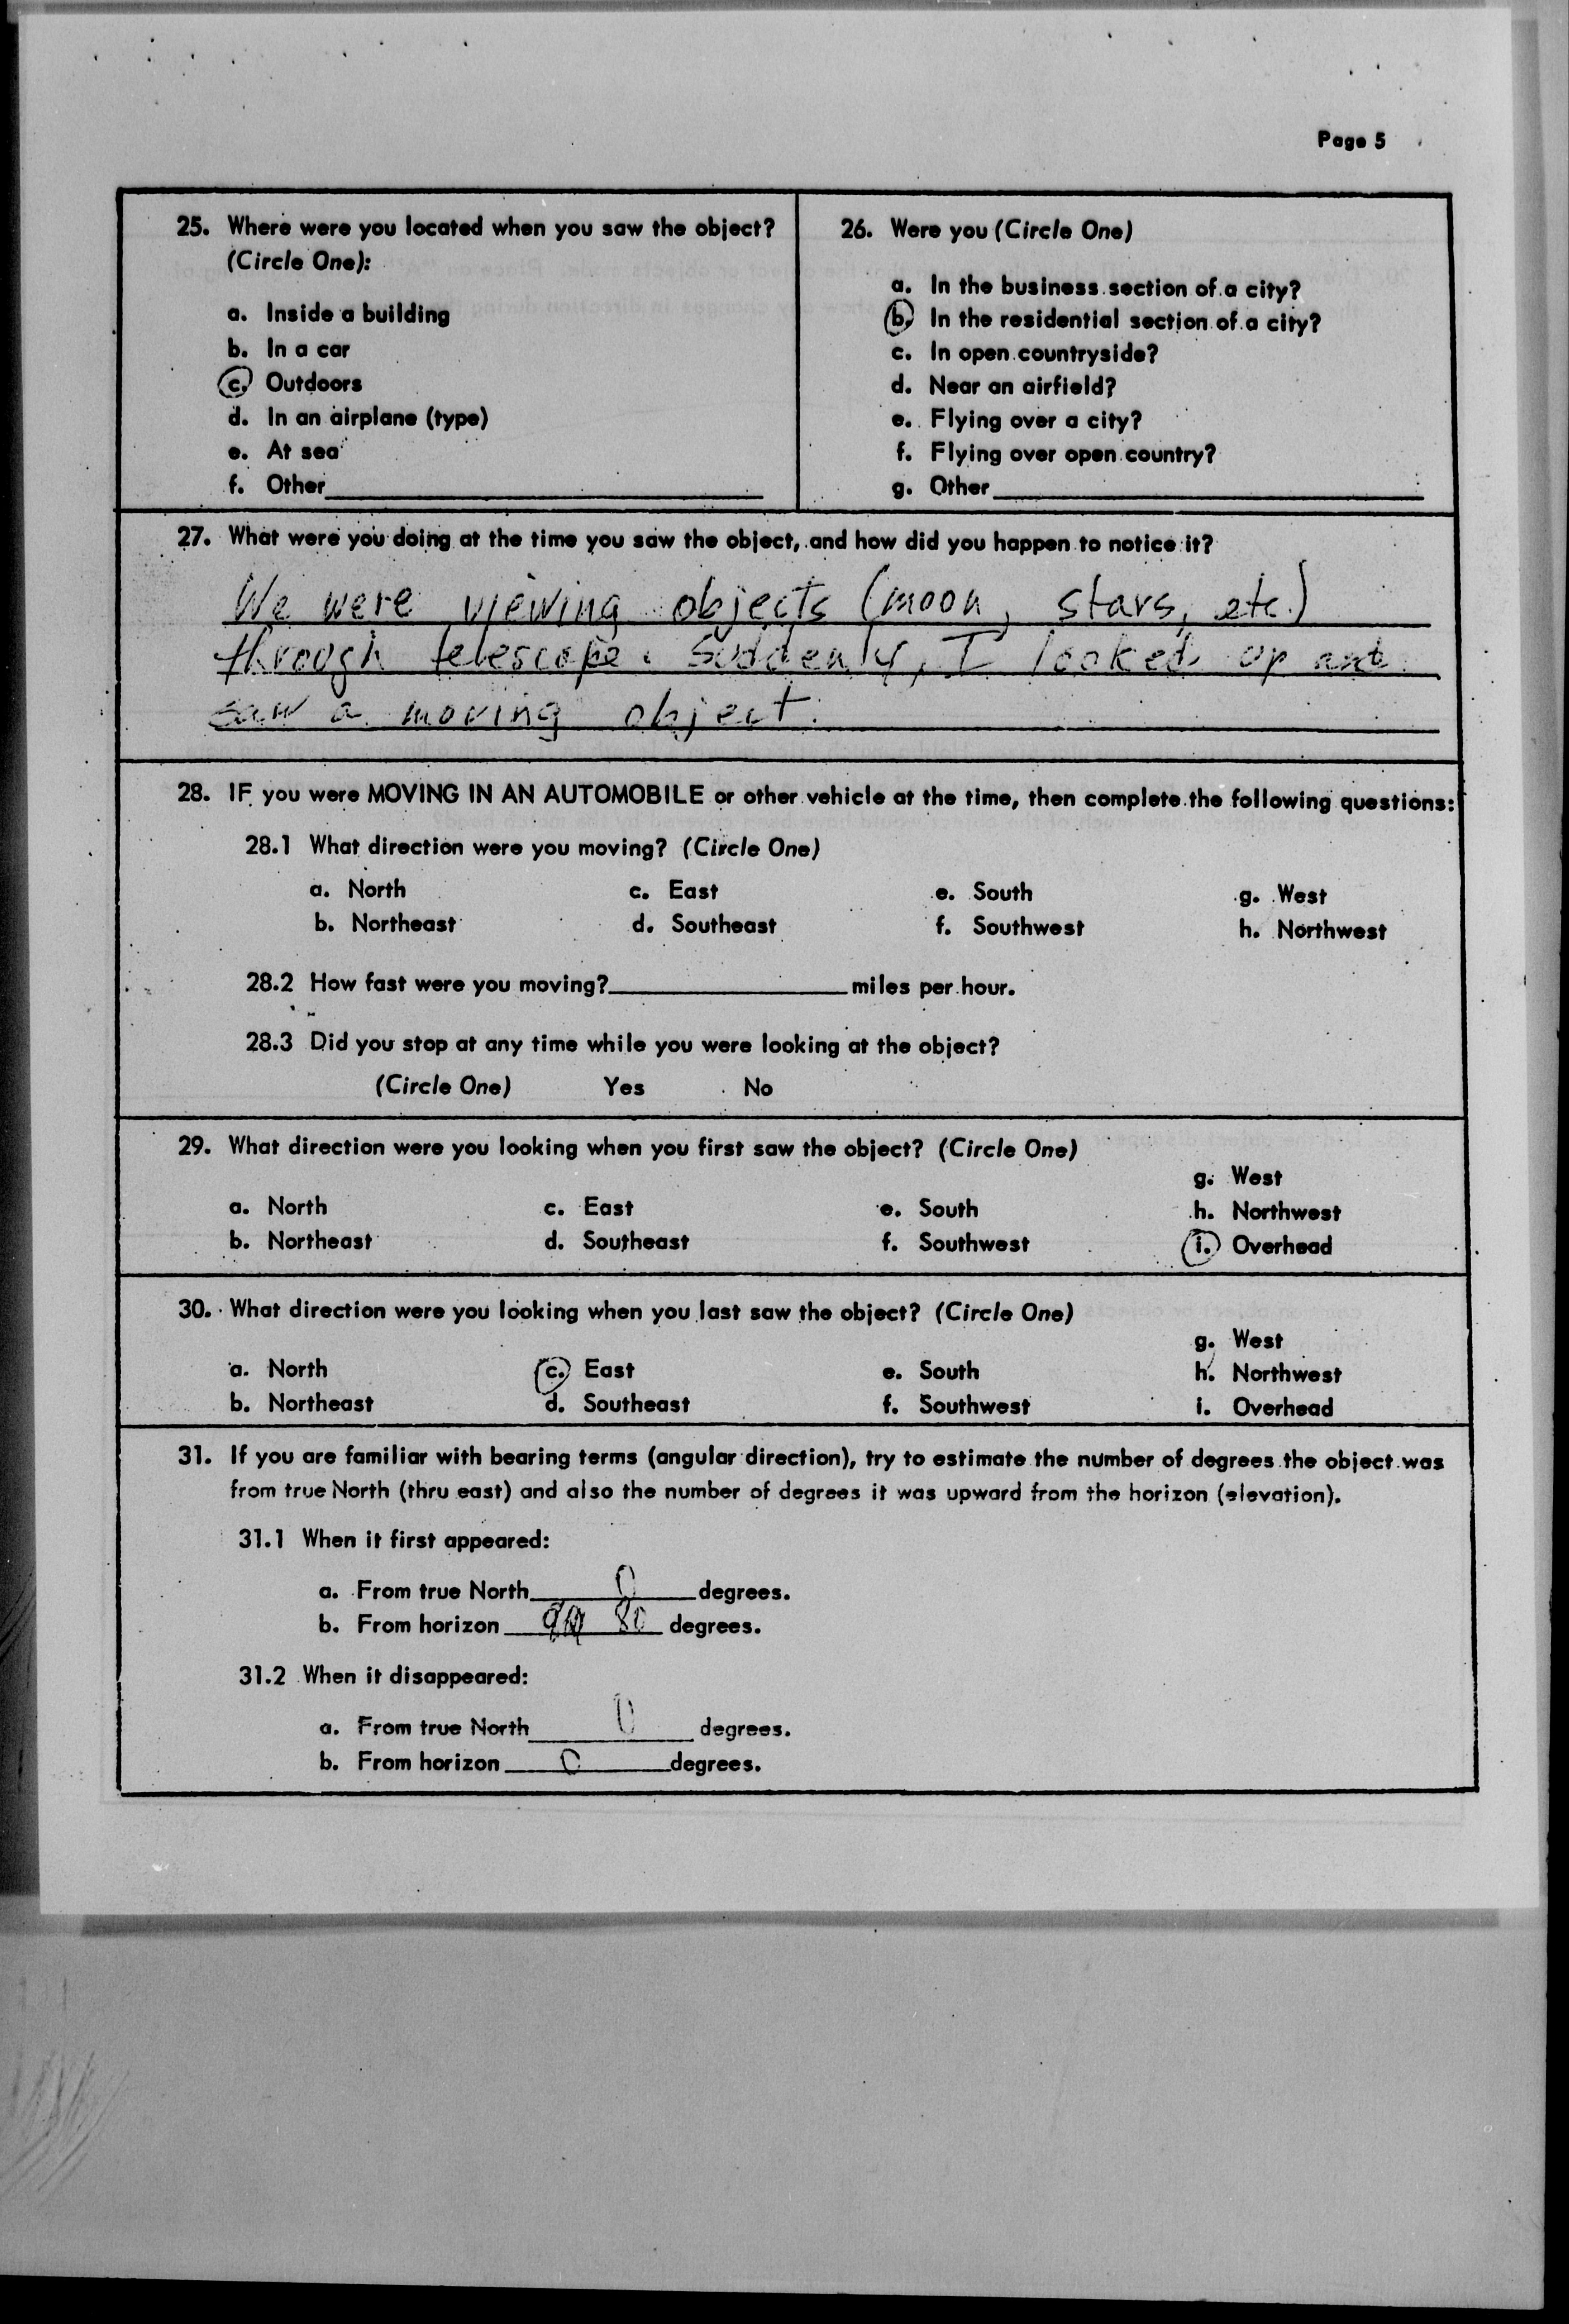 Page 5
25. Where were you located when you saw the object?
(Circle One):
a. Inside a building
b. In a car
c. Outdoors
d. In an airplane (type)
e. At sea
f. Other
26. Were you (Circle One)
a. In the business section of a city?
b. In the residential section of a city?
c. In open countryside?
d. Near an airfield?
e. Flying over a city?
f. Flying over open country?
g. Other
27. What were you doing at the time you saw the object, and how did you happen to notice it?
We were viewing objects (moon, stars, etc.)
through telescope. Suddenly, I looked up and
saw a moving object.
28. IF you were MOVING IN AN AUTOMOBILE or other vehicle at the time, then complete the following questions:
28.1 What direction were you moving? (Circle One)
a. North c. East e. South g. West
b. Northeast d. Southeast f. Southwest h. Northwest
28.2 How fast were you moving? miles per hour.
28.3 Did you stop at any time while you were looking at the object?
(Circle One) Yes No
29. What direction were you looking when you first saw the object? (Circle One)
g. West
a. North c. East e. South h. Northwest
b. Northeast d. Southeast f. Southwest i. Overhead
30. What direction were you looking when you last saw the object? (Circle One)
g. West
a. North c. East e. South h. Northwest
b. Northeast d. Southeast f. Southwest i. Overhead
31. If you are familiar with bearing terms (angular direction), try to estimate the number of degrees the object was
from true North (thru east) and also the number of degrees it was upward from the horizon (elevation).
31.1 When it first appeared:
a. From true North 0 degrees.
b. From horizon 80 degrees.
31.2 When it disappeared:
a. From true North 0 degrees.
b. From horizon 0 degrees.